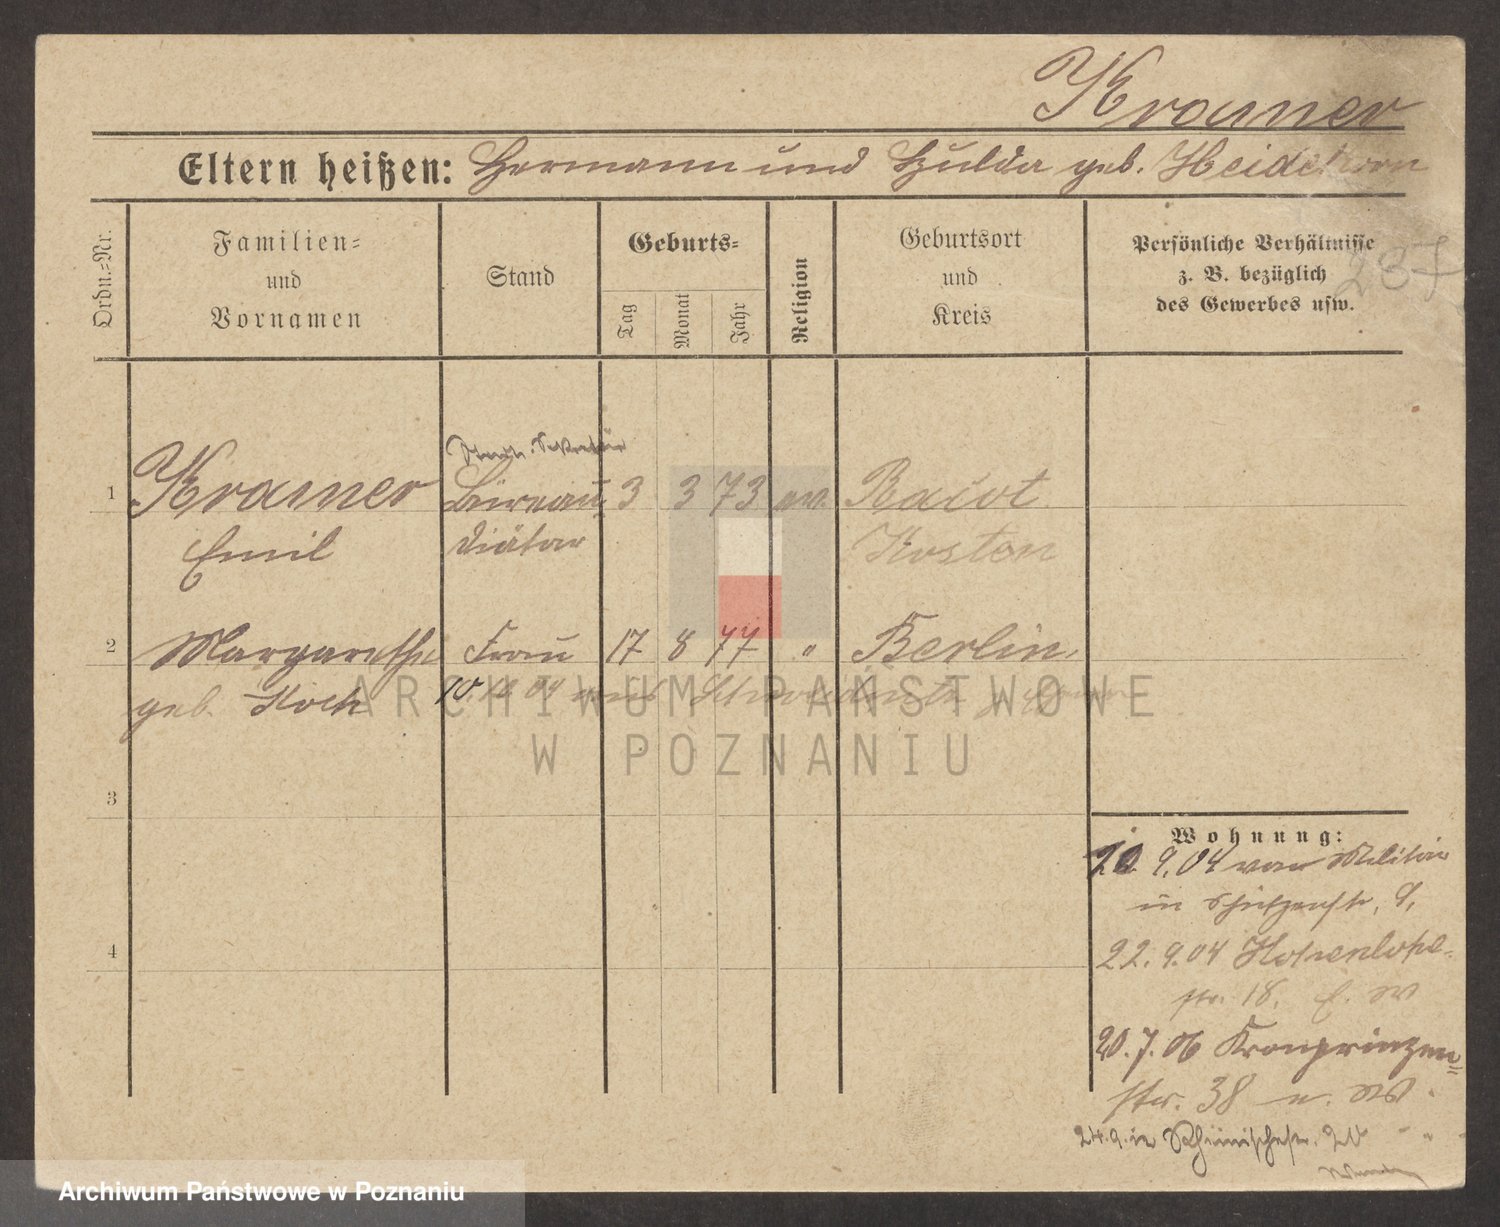 Kramer
Eltern heißen: Hermann und Hulda geb. Heidekorn
Ordn.-Nr.
Familien-
und
Vornamen
Stand
Geburts-
Tag
Monat
Jahr
Religion
Geburtsort
und
Kreis
Persönliche Verhältnisse
z. B. bezüglich
des Gewerbes usw.
237
Sekretär
1 Kramer Büreau 3 3 73 ev. Racot
Emil diätar Kosten
2 Margarethe Frau 17 8 77 " Berlin
geb. Koch 10. 04
3
4
Wohnung:
20. 9. 04 vom Militär
in Schützenstr. 9.
22. 9. 04 Hohenlohe-
str. 18.
20. 7. 06 Kronprinzen-
str. 38
24. 9. in
ARCHIWUM PAŃSTWOWE
W POZNANIU
Archiwum Państwowe w Poznaniu